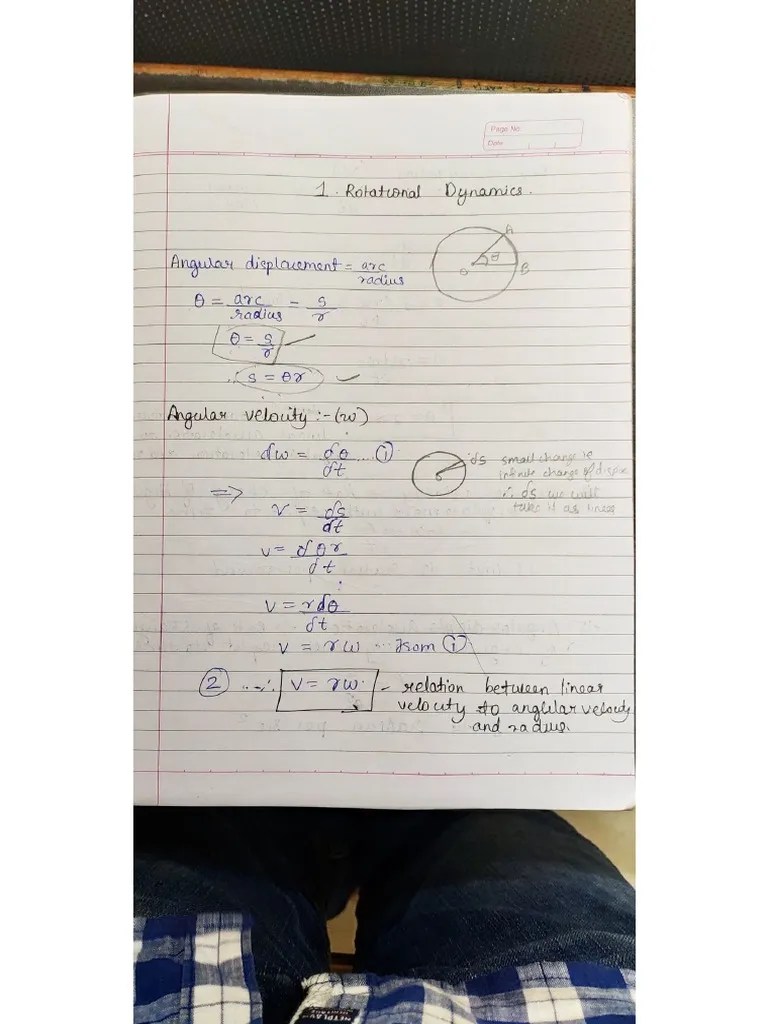 Page No.
Date
1. Rotational Dynamics.
Angular displacement = arc/radius
A
θ
O
B
θ = arc/radius = s/r
θ = s/r
∴ s = θr
Angular velocity :- (w)
dw = dθ/dt ....①
ds small change ie
infinite change of
∴ ds we will
take it as linear
⇒
v = ds/dt
v = dθr/dt
v = rdθ/dt
v = rw ... from ①
② ...∴ v = rw. - relation between linear
velocity to anglular velocity
and radius.